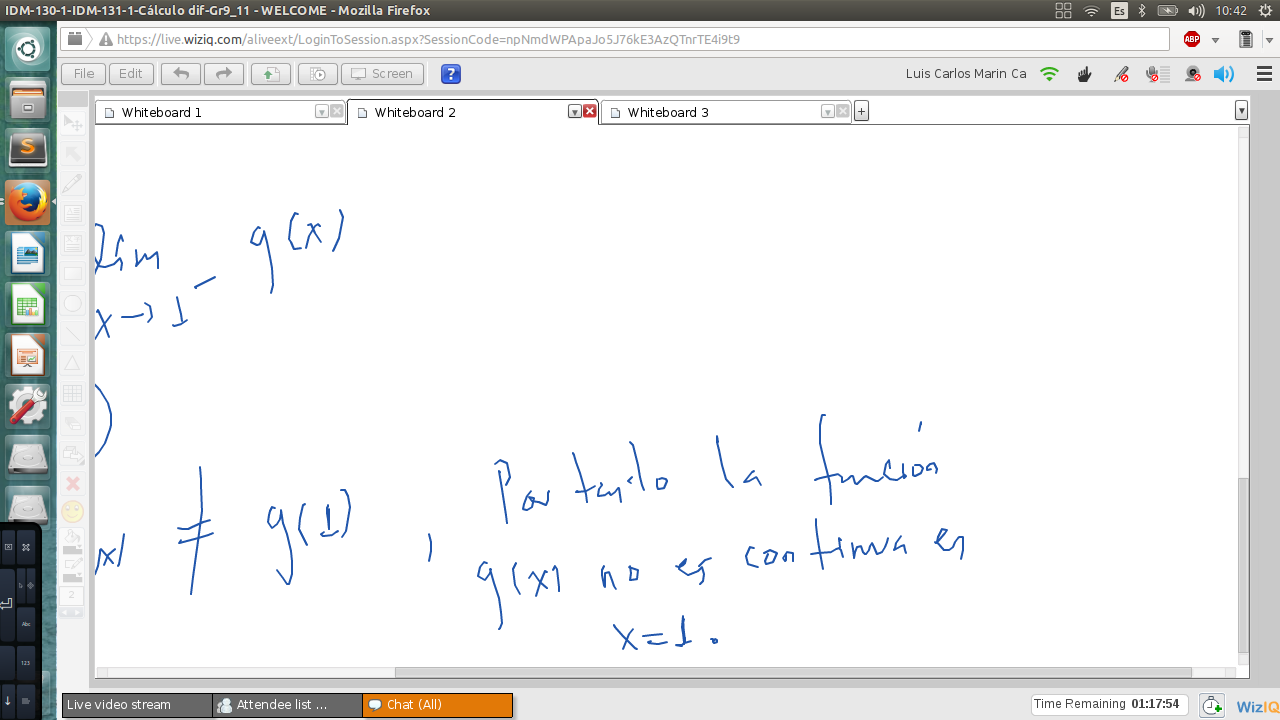 IDM-130-1-IDM-131-1-Cálculo dif-Gr9_11 - WELCOME - Mozilla Firefox
Es
10:42
https://live.wiziq.com/aliveext/LoginToSession.aspx?SessionCode=npNmdWPApaJo5J76kE3AzQTnrTE4i9t9
ABP
File Edit Screen ? Luis Carlos Marin Ca
Whiteboard 1 Whiteboard 2 Whiteboard 3
lím g(x)
x → 1⁻
x) ≠ g(1) , Por tanto la función
g(x) no es continua en
x = 1 .
2
Abc
123
Live video stream Attendee list ... Chat (All)
Time Remaining 01:17:54
WizIQ